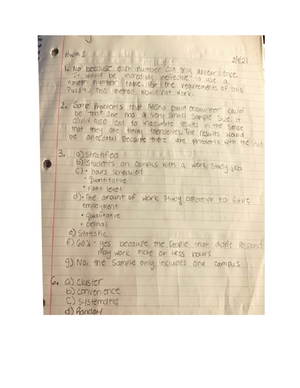 HW#1
2/4/21
1. No because each number can only appear once.
It would be incredibly ineffective to use a
number table for the requirements of this
this method would not work.
2. Some problems that Alisha could encounter could
be that she had a very small sample size. It
could also lead to inaccurate results in the sense
that they are
The results would
be anecdotal because there are problems with the
3. a) Stratified
b) Students on campus with a work study job
c) • hours scheduled
• quantitative
• ratio level
d) • The amount of work study
to future
employment
• qualitative
• ordinal
e) Statistic
f) 60% - yes because the people that didn't respond
may work more or less hours.
g) No, the sample only includes one campus.
6. a) cluster
b) convenience
c) systematic
d) Random